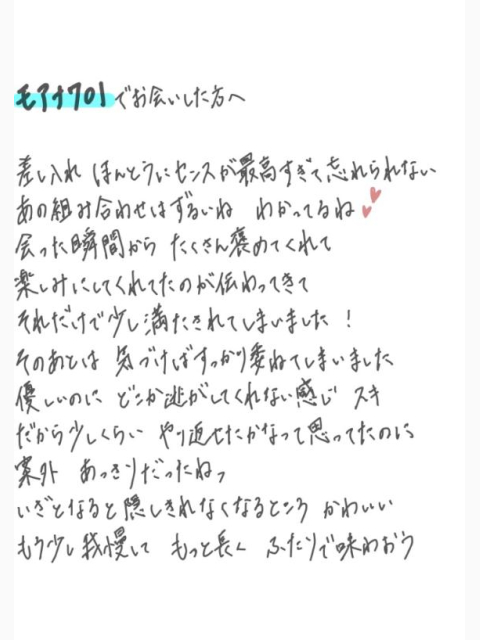 モアナ701でお会いした方へ
差し入れ ほんとうにセンスが最高すぎて忘れられない
あの組み合わせはずるいね わかってるね
会った瞬間から たくさん褒めてくれて
楽しみにしてくれてたのが伝わってきて
それだけで少し満たされてしまいました！
そのあとは 気づけばすっかり委ねてしまいました
優しいのに どこか逃がしてくれない感じ スキ
だから少しくらい やり返せたかなって思ってたのに
案外 あっさりだったねっ
いざとなると隠しきれなくなるところ かわいい
もう少し我慢して もっと長く ふたりで味わおう